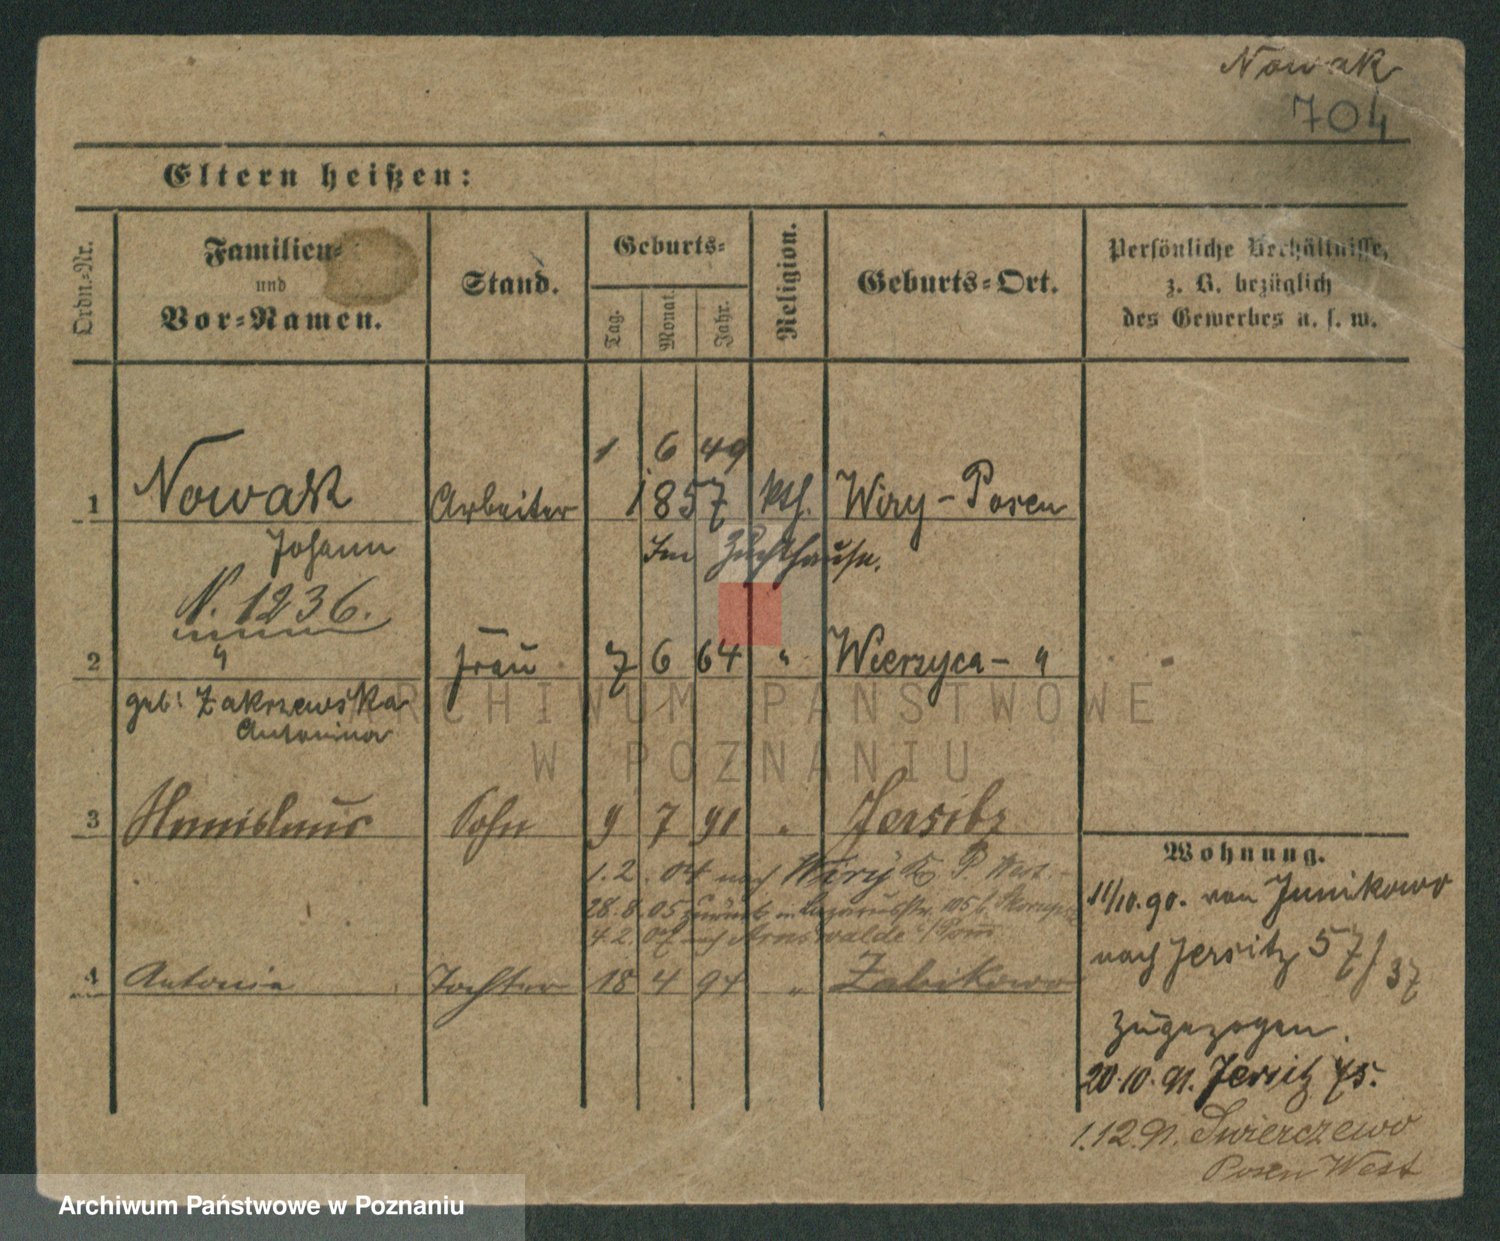 Nowak
704
Eltern heißen:
Ordn.-Nr.
Familien- und Vor-Namen.
Stand.
Geburts-
Tag.
Monat.
Jahr.
Religion.
Geburts-Ort.
Persönliche Verhältnisse, z. B. bezüglich des Gewerbes u. s. w.
1 6 49
1 Nowak Arbeiter 1857 kth. Wiry - Posen
Johann Im Zuchthause.
N. 1236.
2 " Frau 7 6 64 " Wierzyca - "
geb: Zakrzewska
Antonina
3 Stanislaus Sohn 9 7 91 " Jersitz
1.2.04 nach Wiry K P West
28.8.05 zurück Lazarusstr.
4.2.07 nach Arnswalde /Pom
4 Antonia Tochter 18 4 94 " Zabikowo
Wohnung.
11/10.90. von Junikowo
nach Jersitz 57/37
zugezogen.
20.10.91. Jersitz 45.
1.12.91. Swierczewo
Posen West
ARCHIWUM PAŃSTWOWE
W POZNANIU
Archiwum Państwowe w Poznaniu